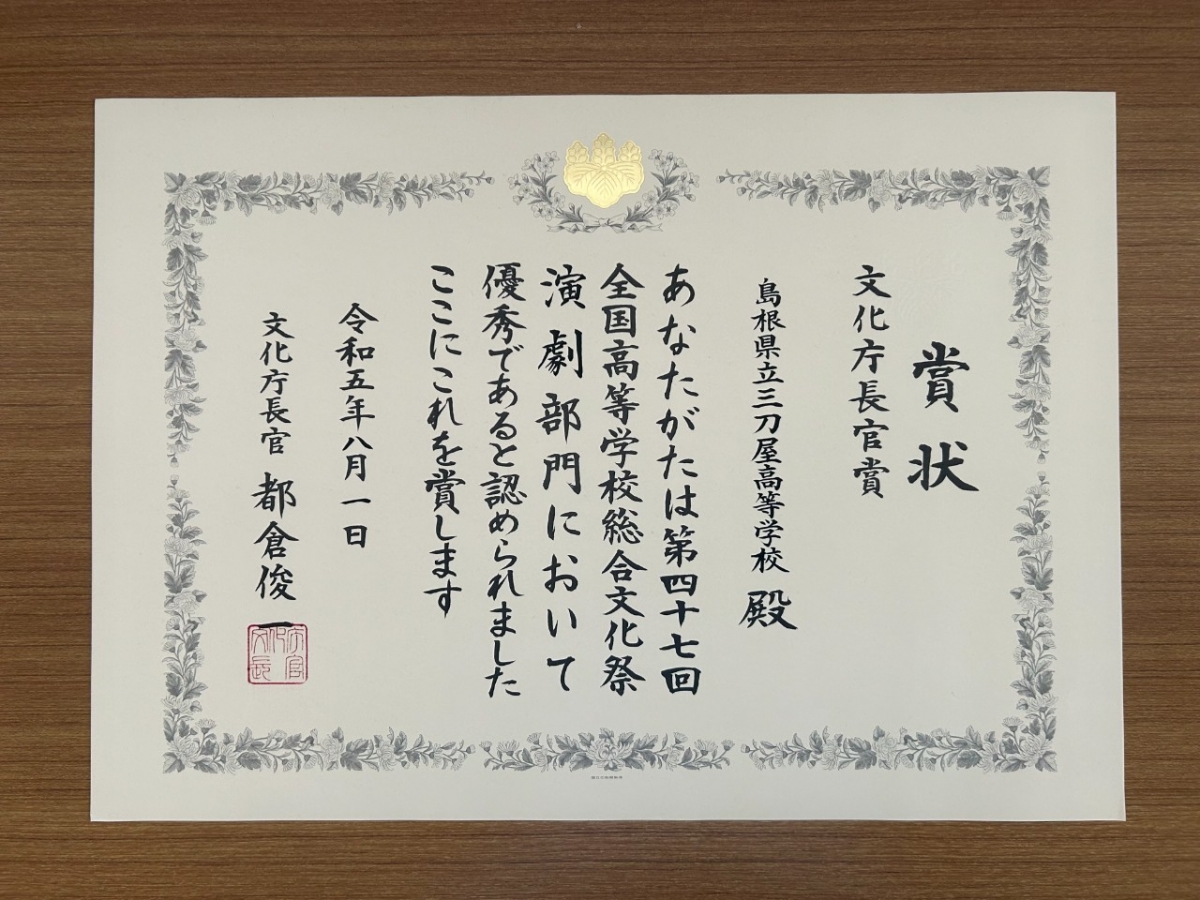 賞状
文化庁長官賞
島根県立三刀屋高等学校 殿
あなたがたは第四十七回
全国高等学校総合文化祭
演劇部門において
優秀であると認められました
ここにこれを賞します
令和五年八月一日
文化庁長官 都倉俊一